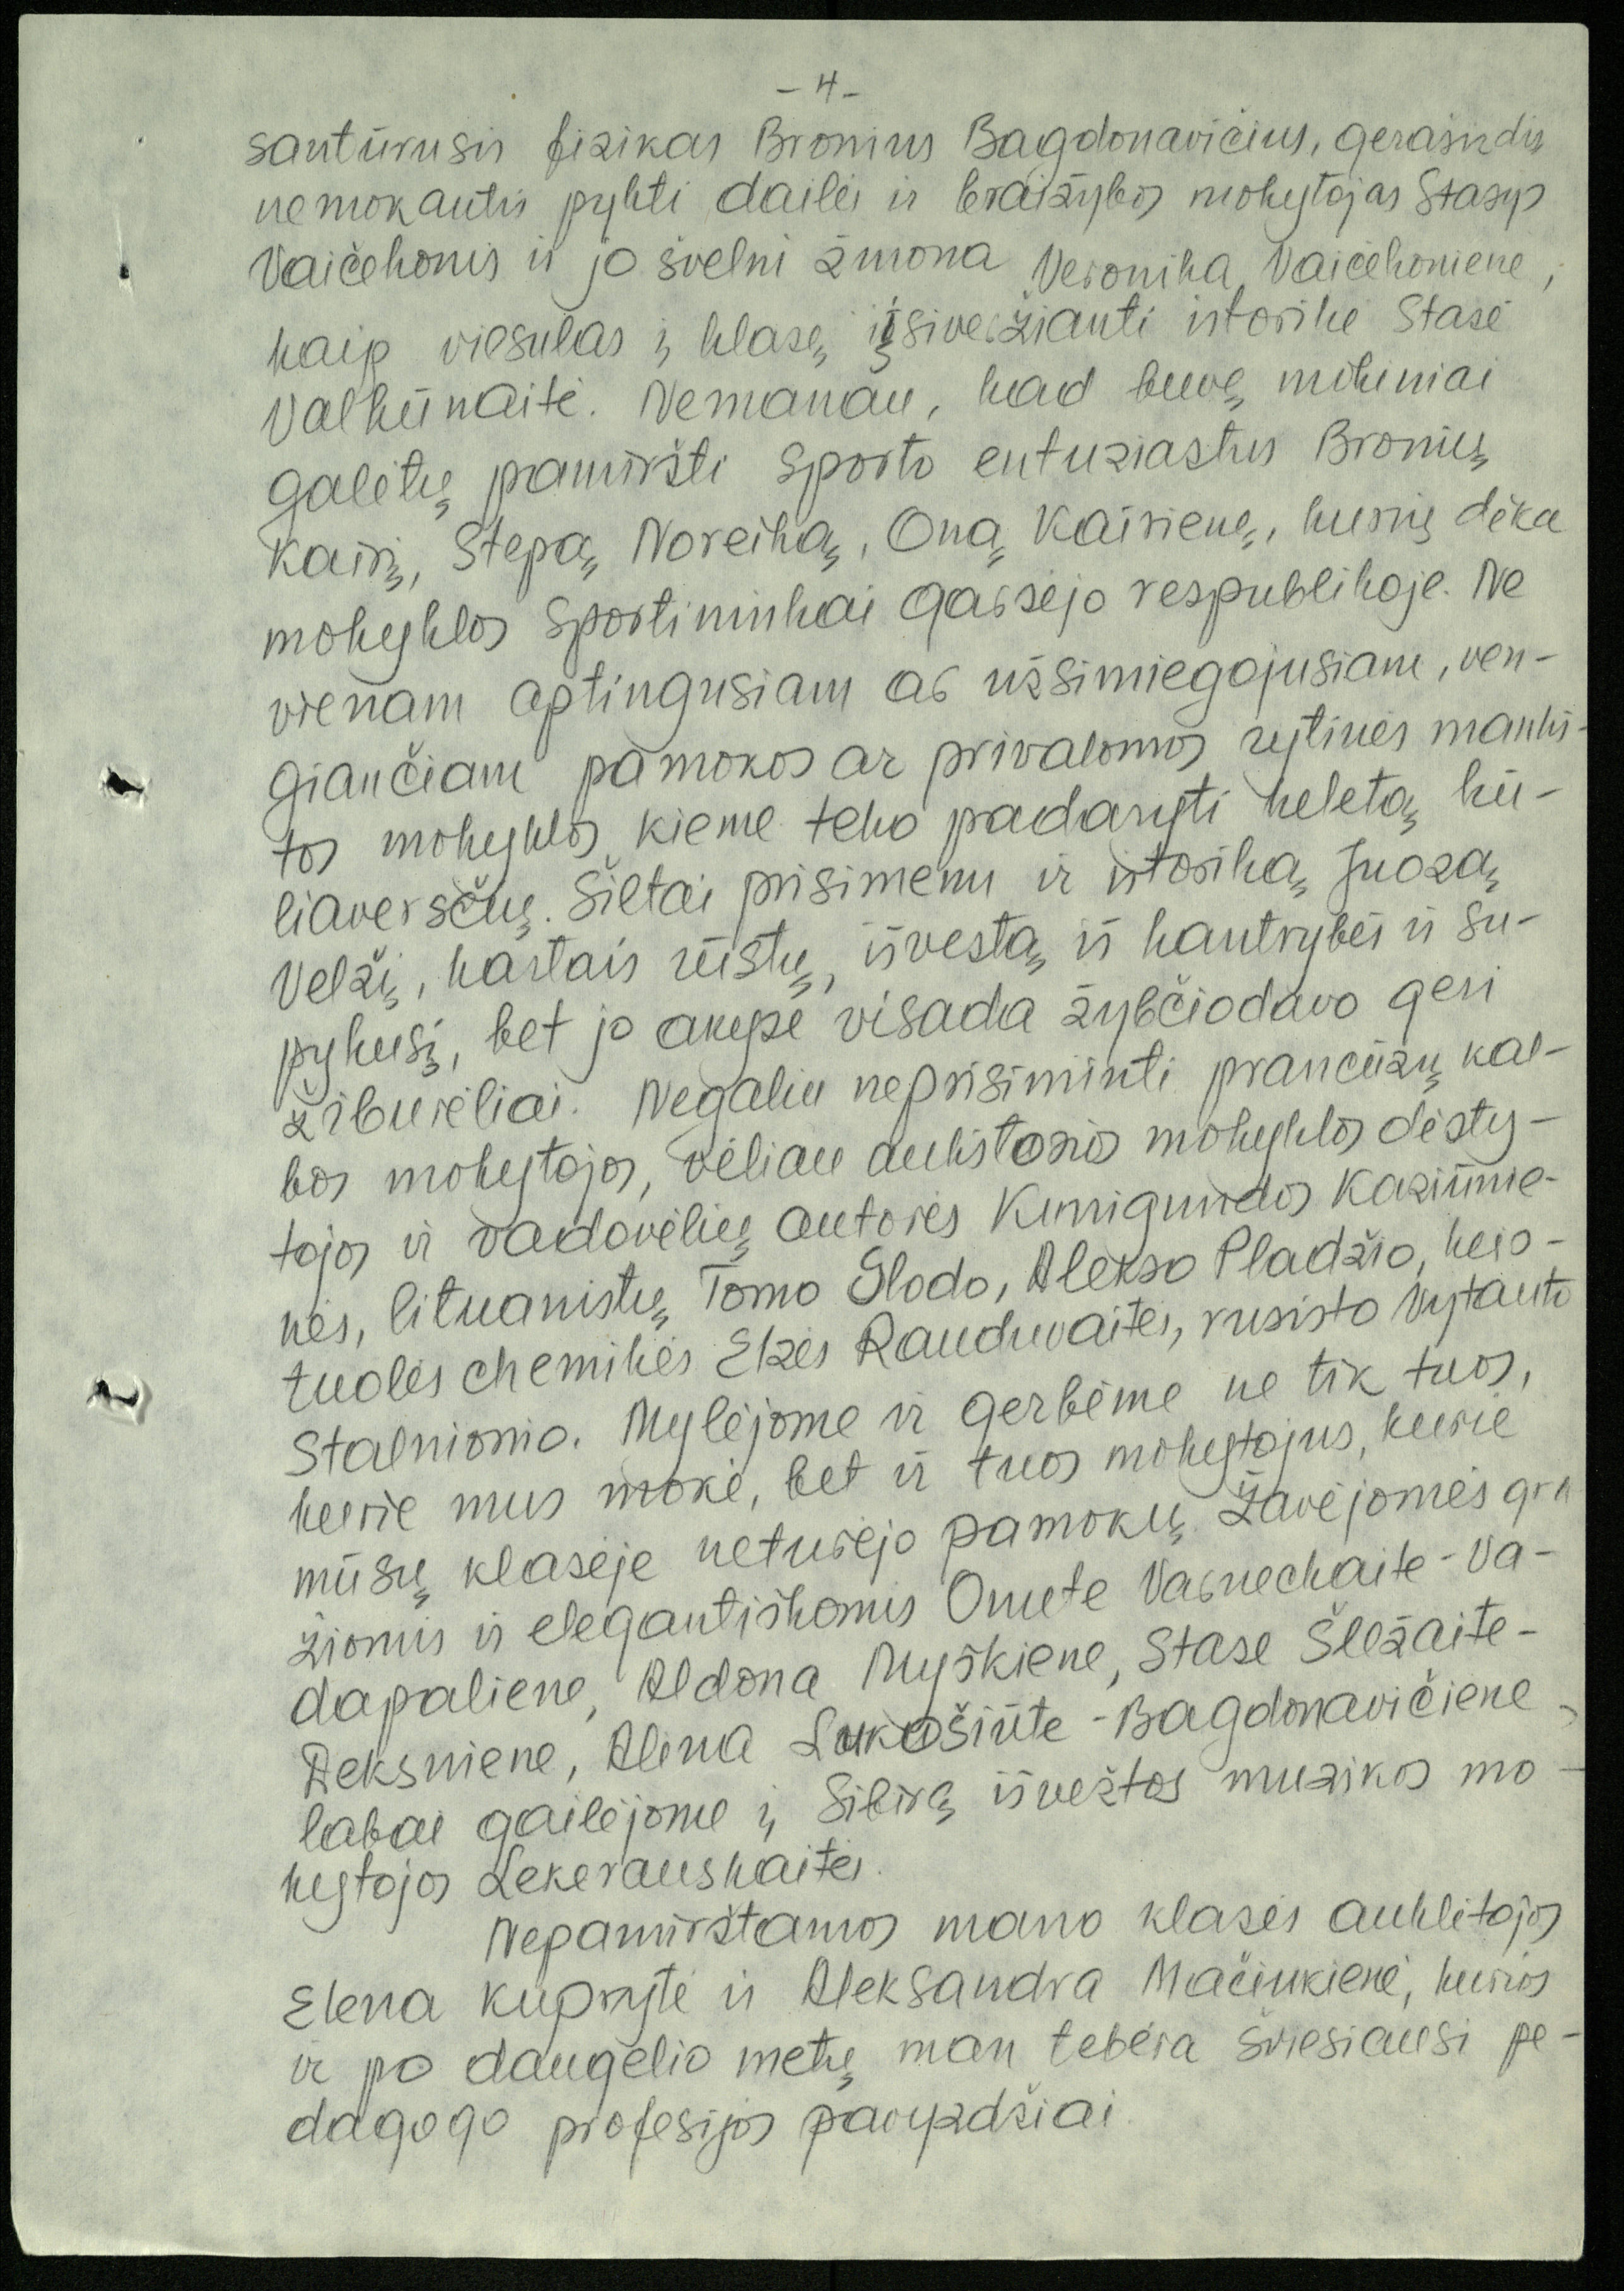 - 4 -
santūrusis fizikas Bronius Bagdonavičius, geraširdis
nemokantis pykti dailės ir braižybos mokytojas Stasys
Vaičekonis ir jo švelni žmona Veronika Vaičekonienė,
kaip viesulas į klasę įsiveržianti istorikė Stasė
Valkūnaitė. Nemanau, kad buvę mokiniai
galėtų pamiršti sporto entuziastus Bronių
Kairį, Stepą Noreiką, Oną Kairienę, kurių dėka
mokyklos sportininkai garsėjo respublikoje. Ne
vienam aptingusiam ar užsimiegojusiam, ven-
giančiam pamokos ar privalomos rytinės mankš-
tos mokyklos kieme teko padaryti keletą kū-
liaversčių. Šiltai prisimenu ir istoriką Juozą
Velžį, kartais rūstų, išvestą iš kantrybės ir su-
pykusį, bet jo akyse visada žybčiodavo geri
žiburėliai. Negaliu neprisiminti prancūzų kal-
bos mokytojos, vėliau aukštosios mokyklos dėsty-
tojos ir vadovėlių autorės Kunigundos Kaziūnie-
nės, lituanistų Tomo Glodo, Alekso Pladžio, keis-
tuolės chemikės Elzės Rauduvaitės, rusisto Vytauto
Stalnionio. Mylėjome ir gerbėme ne tik tuos,
kurie mus mokė, bet ir tuos mokytojus, kurie
mūsų klasėje neturėjo pamokų. Žavėjomės gra
žiomis ir elegantiškomis Onute Varneckaite-Va-
dapaliene, Aldona Myškiene, Stase Šležaite-
Aeksniene, Alina Lukošiūte-Bagdonavičiene,
labai gailėjome į Sibirą išvežtos muzikos mo-
kytojos Lekerauskaitės.
Nepamirštamos mano klasės auklėtojos
Elena Kuprytė ir Aleksandra Mačiukienė, kurios
ir po daugelio metų man tebėra šviesiausi pe-
dagogo profesijos pavyzdžiai